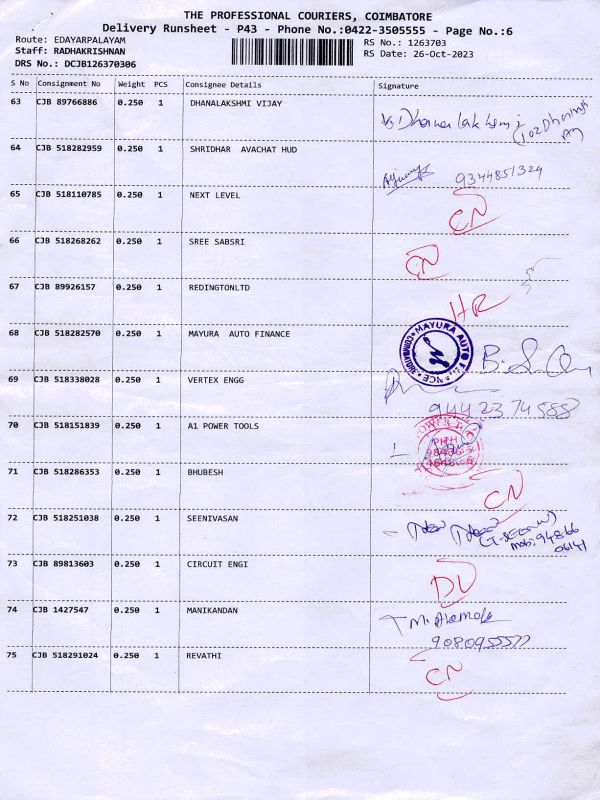 THE PROFESSIONAL COURIERS, COIMBATORE
Delivery Runsheet - P43 - Phone No.:0422-3505555 - Page No.:6
Route: EDAYARPALAYAM
RS No.: 1263703
Staff: RADHAKRISHNAN
RS Date: 26-Oct-2023
DRS No.: DCJB126370306
S No Consignment No Weight PCS Consignee Details Signature
63 CJB 89766886 0.250 1 DHANALAKSHMI VIJAY
64 CJB 518282959 0.250 1 SHRIDHAR AVACHAT HUD
9344851329
65 CJB 518110785 0.250 1 NEXT LEVEL
CN
66 CJB 518268262 0.250 1 SREE SABSRI
CN
67 CJB 89926157 0.250 1 REDINGTONLTD
HR
68 CJB 518282570 0.250 1 MAYURA AUTO FINANCE
MAYURA AUTO FINANCE
69 CJB 518338028 0.250 1 VERTEX ENGG
944 23 74 588
70 CJB 518151839 0.250 1 A1 POWER TOOLS
71 CJB 518286353 0.250 1 BHUBESH
CN
72 CJB 518251038 0.250 1 SEENIVASAN
mob: 94866
06141
73 CJB 89813603 0.250 1 CIRCUIT ENGI
DL
74 CJB 1427547 0.250 1 MANIKANDAN
9080955577
75 CJB 518291024 0.250 1 REVATHI
CN